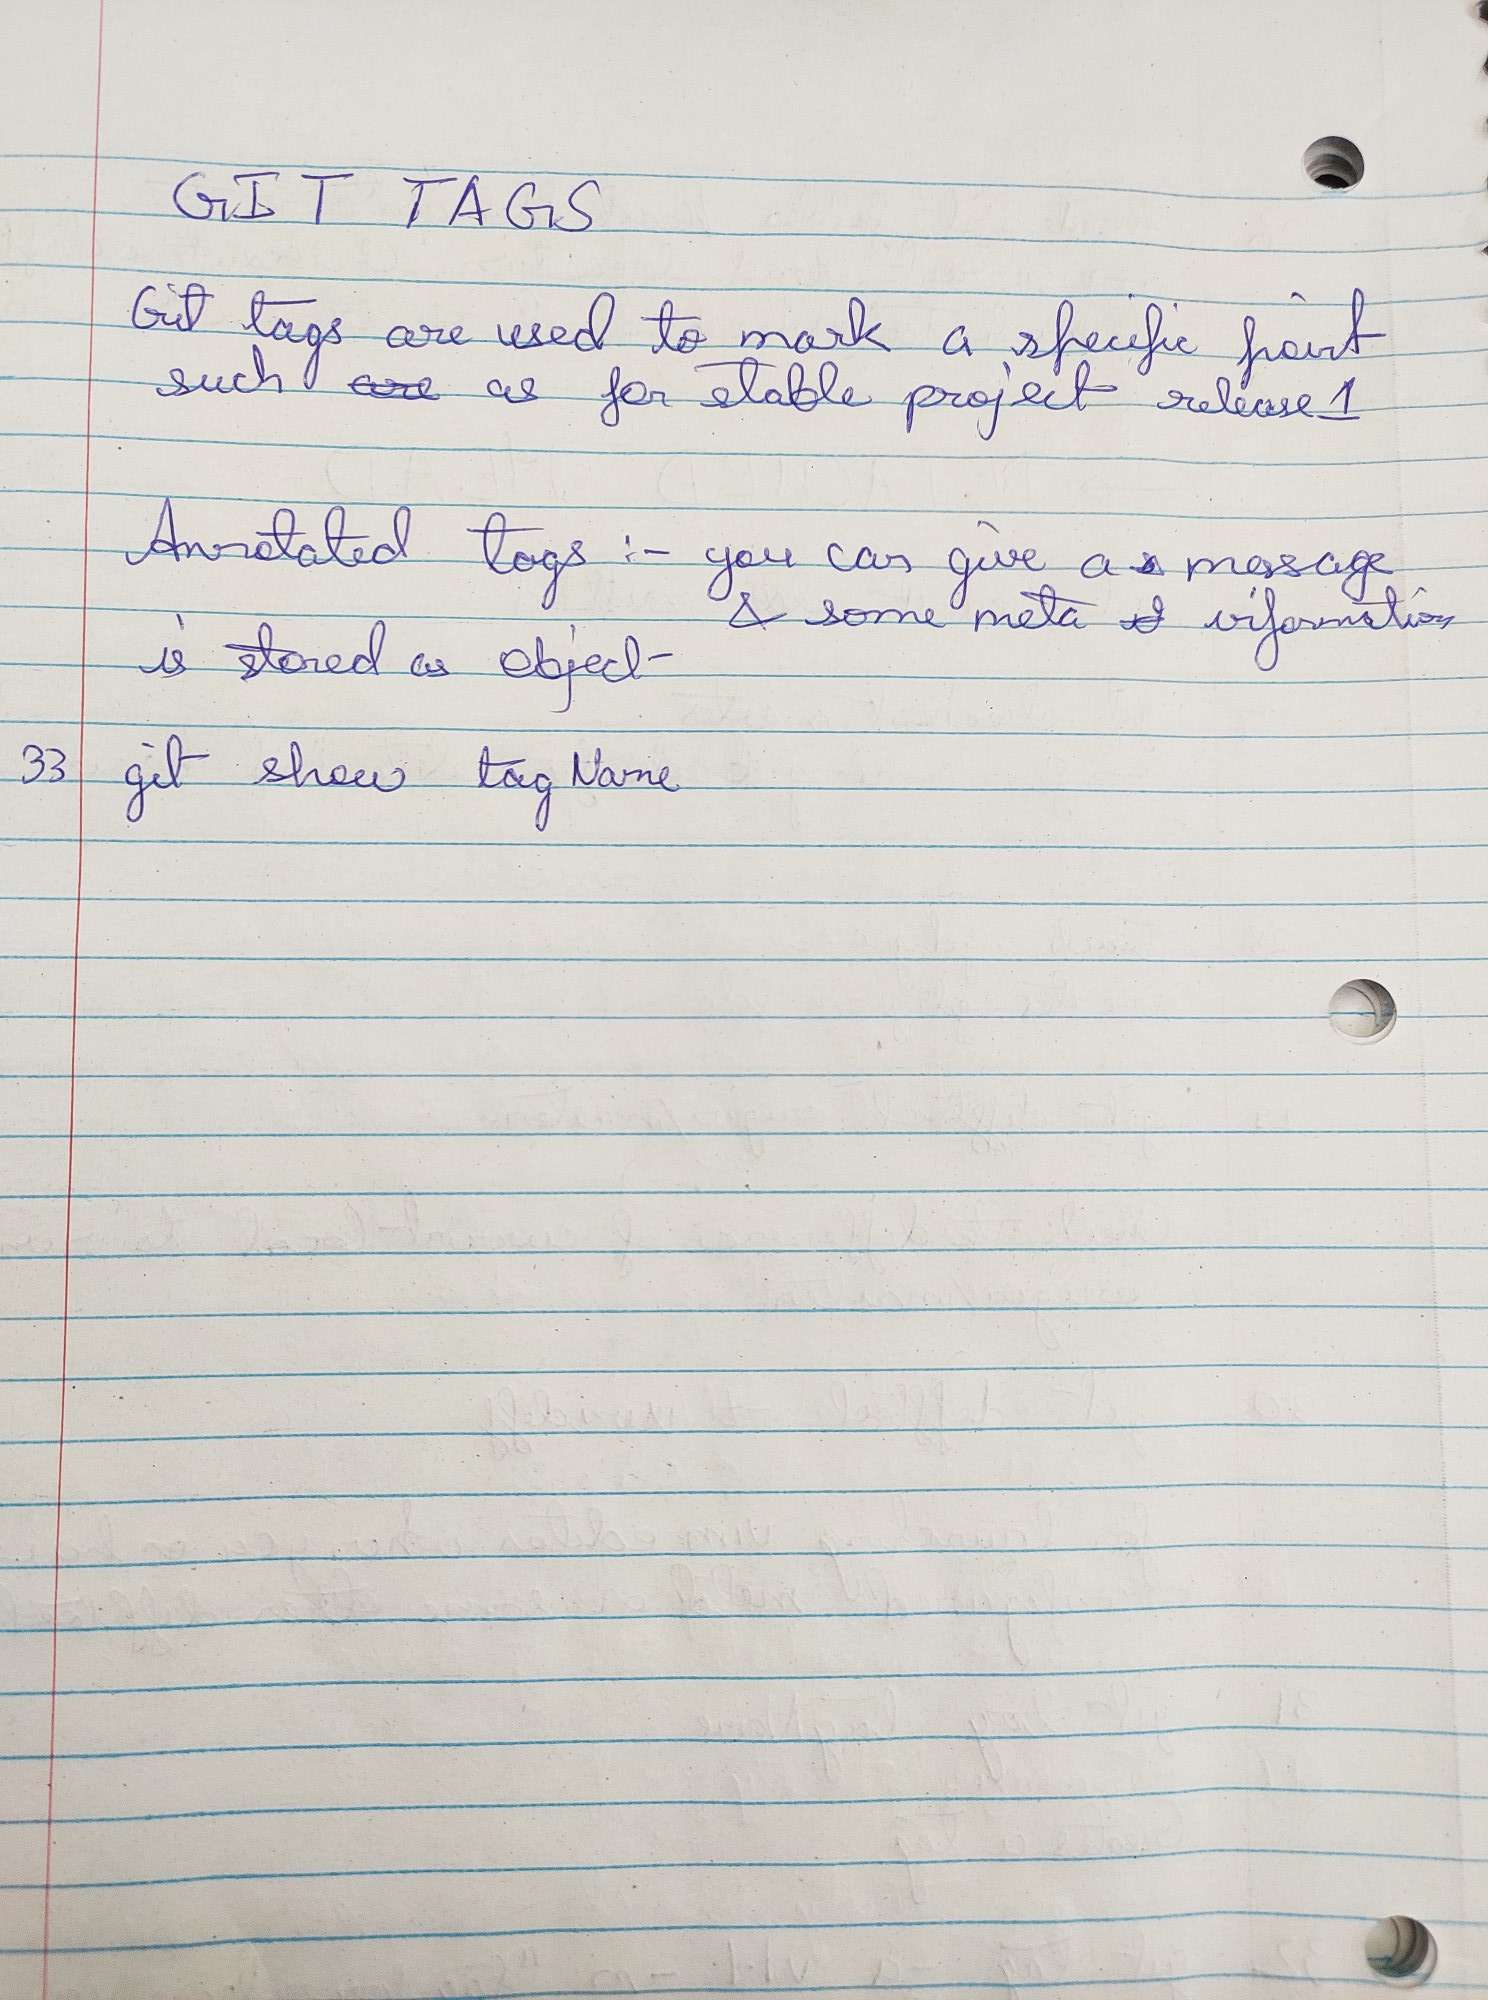 GIT TAGS
Git tags are used to mark a specific point
such are as for stable project release 1
Annotated tags :- you can give a message
& some meta information
is stored as object
33 git show tagName